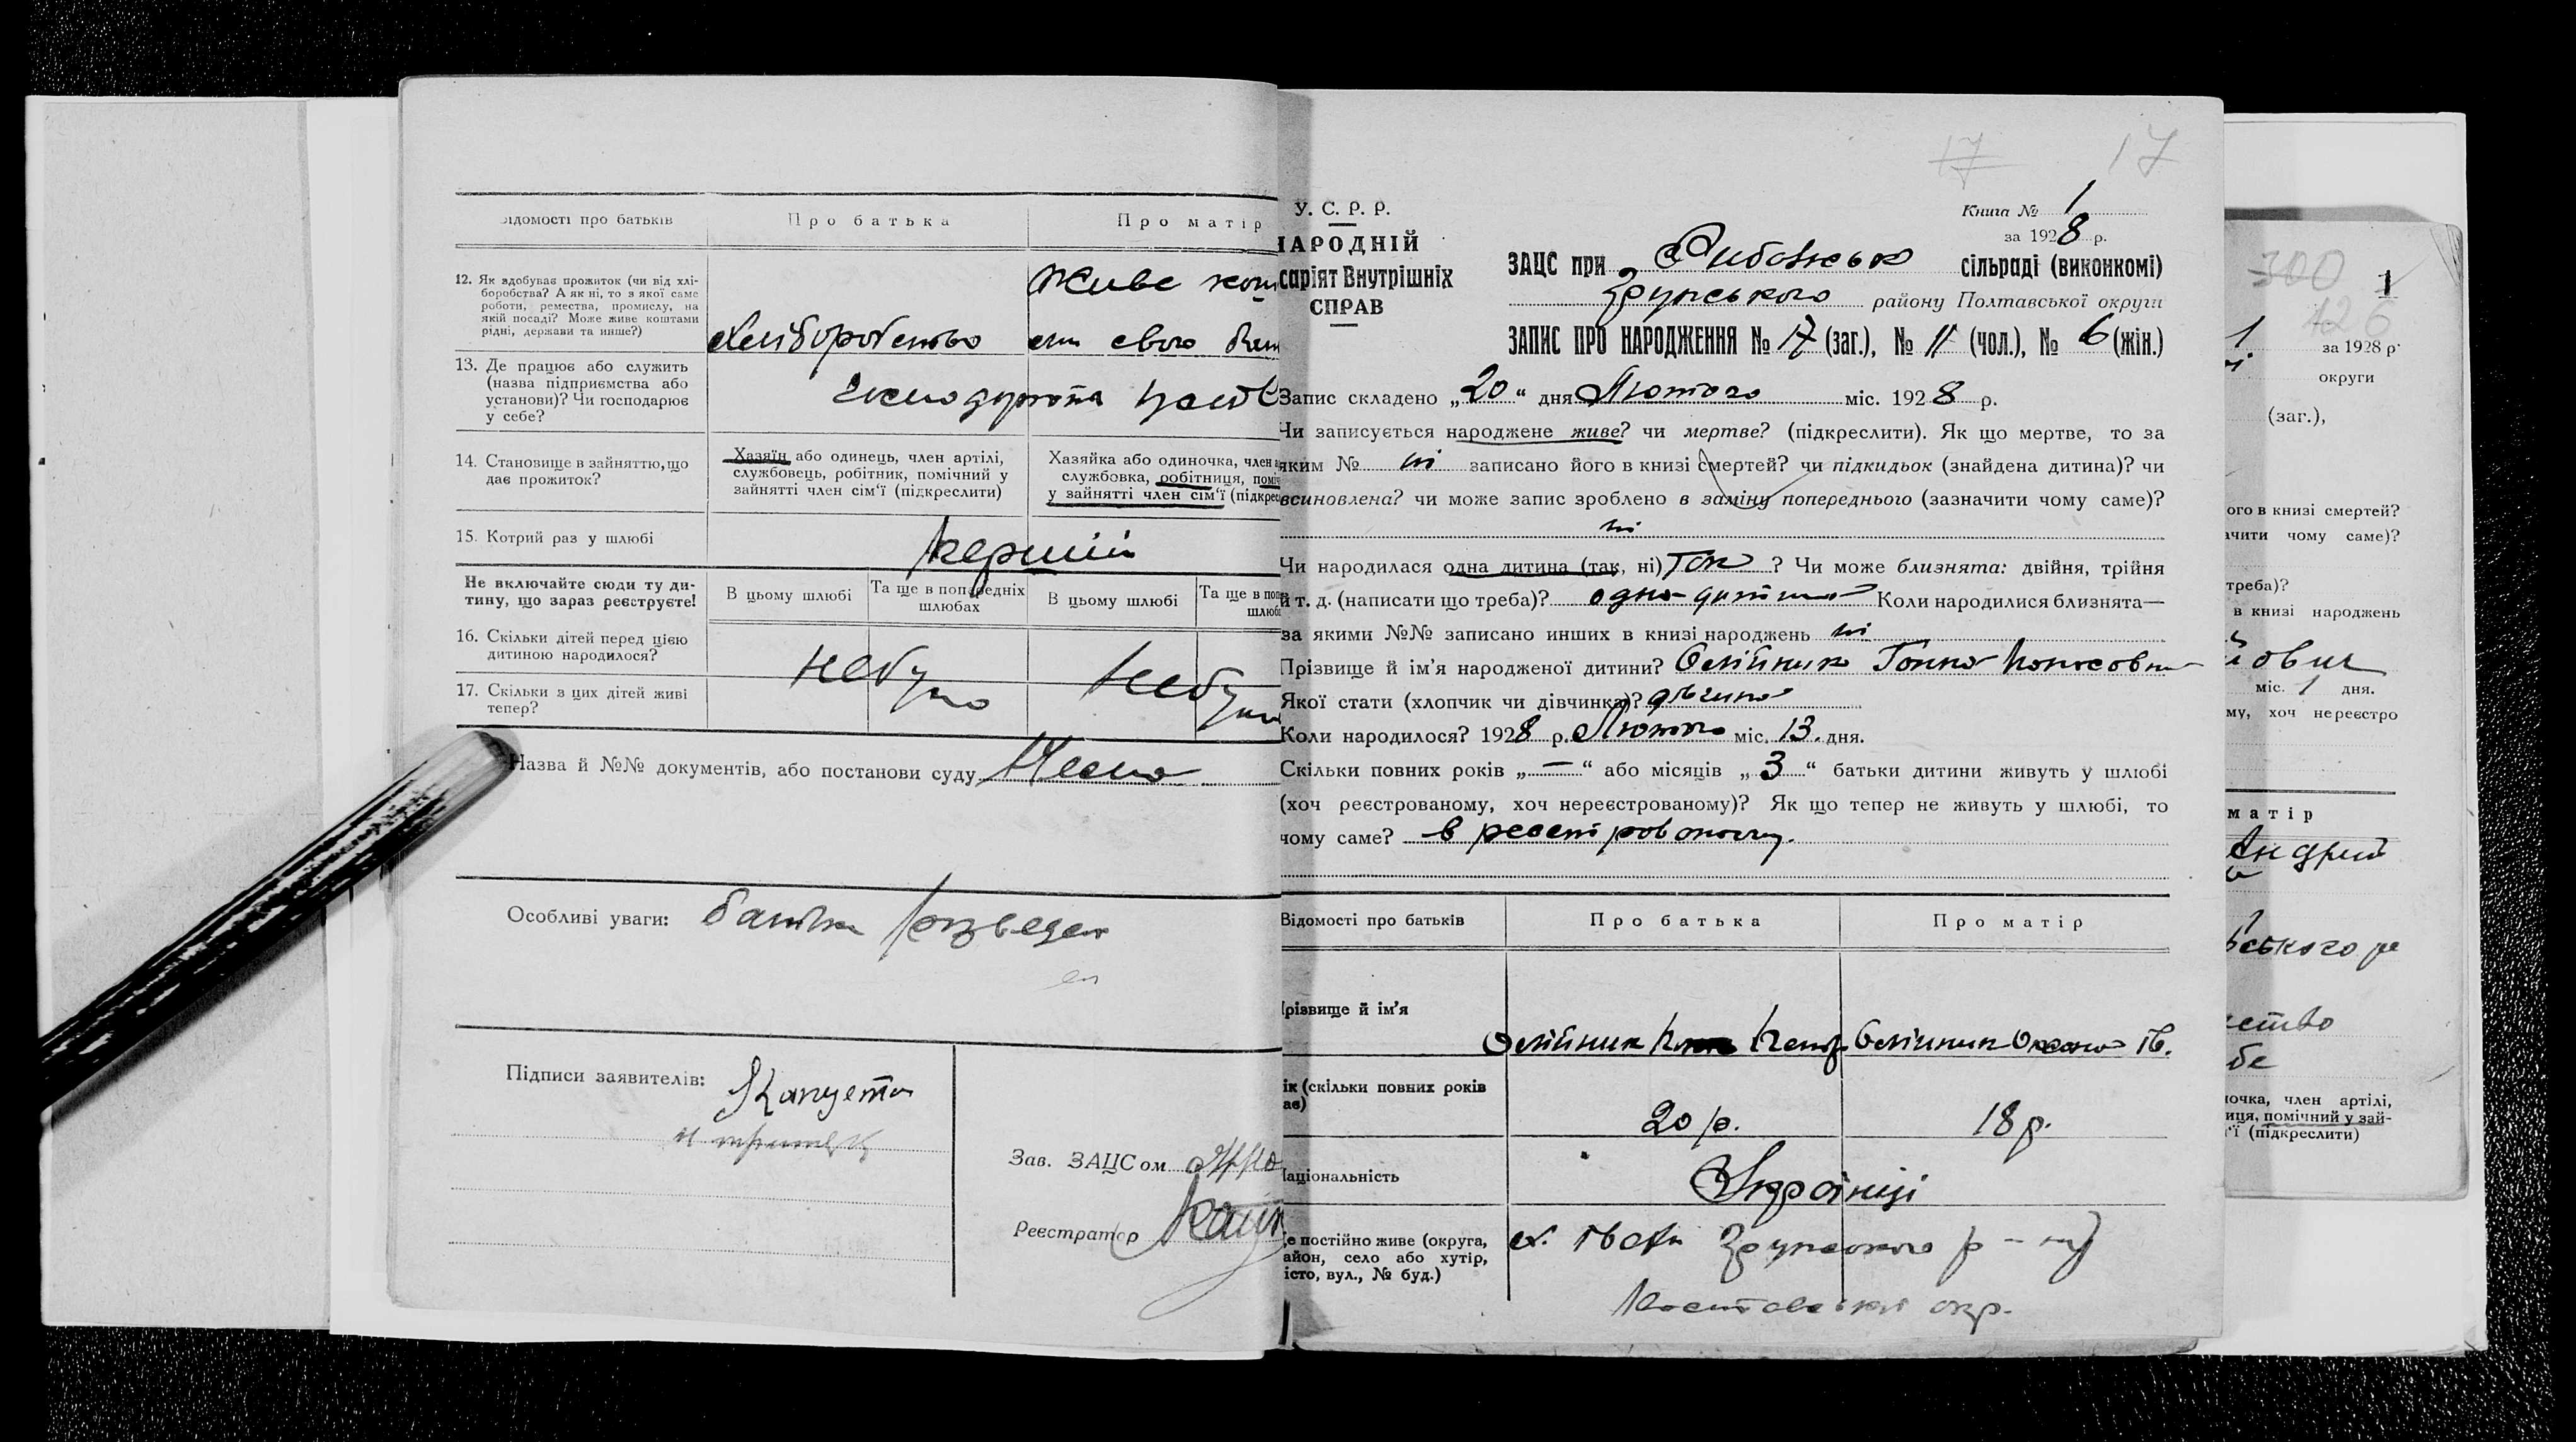 Відомості про батьків
Про батька
Про матір
12. Як здобуває прожиток (чи від хлі-
боробства? А як ні, то з якої саме
роботи, ремества, промислу, на
якій посаді? Може живе коштами
рідні, держави та инше?)
Хліборобство
Живе кош
свого
13. Де працює або служить
(назва підприємства або
установи)? Чи господарює
у себе?
14. Становище в зайняттю, що
дає прожиток?
Хазяїн або одинець, член артілі,
службовець, робітник, помічний у
зайнятті член сім'ї (підкреслити)
Хазяйка або одиночка, член
службовка, робітниця, поміч
у зайнятті член сім'ї (підкрес
15. Котрий раз у шлюбі
перший
Не включайте сюди ту ди-
тину, що зараз реєструєте!
В цьому шлюбі
Та ще в попередніх
шлюбах
В цьому шлюбі
Та ще в поп
шлюб
16. Скільки дітей перед цією
дитиною народилося?
небуло
небуло
17. Скільки з цих дітей живі
тепер?
Назва й №№ документів, або постанови суду
Особливі уваги:
Підписи заявителів:
Капуста
Зав. ЗАЦСом
Реєстратор
17 17
У. С. Р. Р.
НАРОДНІЙ
саріят Внутрішніх
СПРАВ
Книга № 1
за 1928 р.
ЗАЦС при сільраді (виконкомі)
району Полтавської округи
ЗАПИС ПРО НАРОДЖЕННЯ № 17 (заг.), № 11 (чол.), № 6 (жін.)
Запис складено „20“ дня Лютого міс. 1928 р.
Чи записується народжене живе? чи мертве? (підкреслити). Як що мертве, то за
яким № ні записано його в книзі смертей? чи підкидьок (знайдена дитина)? чи
всиновлена? чи може запис зроблено в заміну попереднього (зазначити чому саме)?
ні
Чи народилася одна дитина (так, ні) так ? Чи може близнята: двійня, трійня
й т. д. (написати що треба)? одна дитина Коли народилися близнята—
за якими №№ записано инших в книзі народжень ні
Прізвище й ім'я народженої дитини? Олійник Ганна
Якої стати (хлопчик чи дівчинка)? дівчина
Коли народилося? 1928 р. Лютого міс. 13 дня.
Скільки повних років „—“ або місяців „3“ батьки дитини живуть у шлюбі
(хоч реєстрованому, хоч нереєстрованому)? Як що тепер не живуть у шлюбі, то
чому саме? в реєстрованому.
Відомості про батьків
Про батька
Про матір
Прізвище й ім'я
Олійник
Олійник Оксана Ів.
ік (скільки повних років
ає)
20 р.
18 р.
Національність
Українці
е постійно живе (округа,
айон, село або хутір,
істо, вул., № буд.)
х.
р-ну
Полтавської окр.
300
1
426
1
за 1928 р.
округи
(заг.),
ого в книзі смертей?
ачити чому саме)?
треба)?
в книзі народжень
йович
міс. 1 дня.
му, хоч нереєстро
матір
Андрій
ського р
ство
бе
ночка, член артілі,
иця, помічний у зай-
'ї (підкреслити)